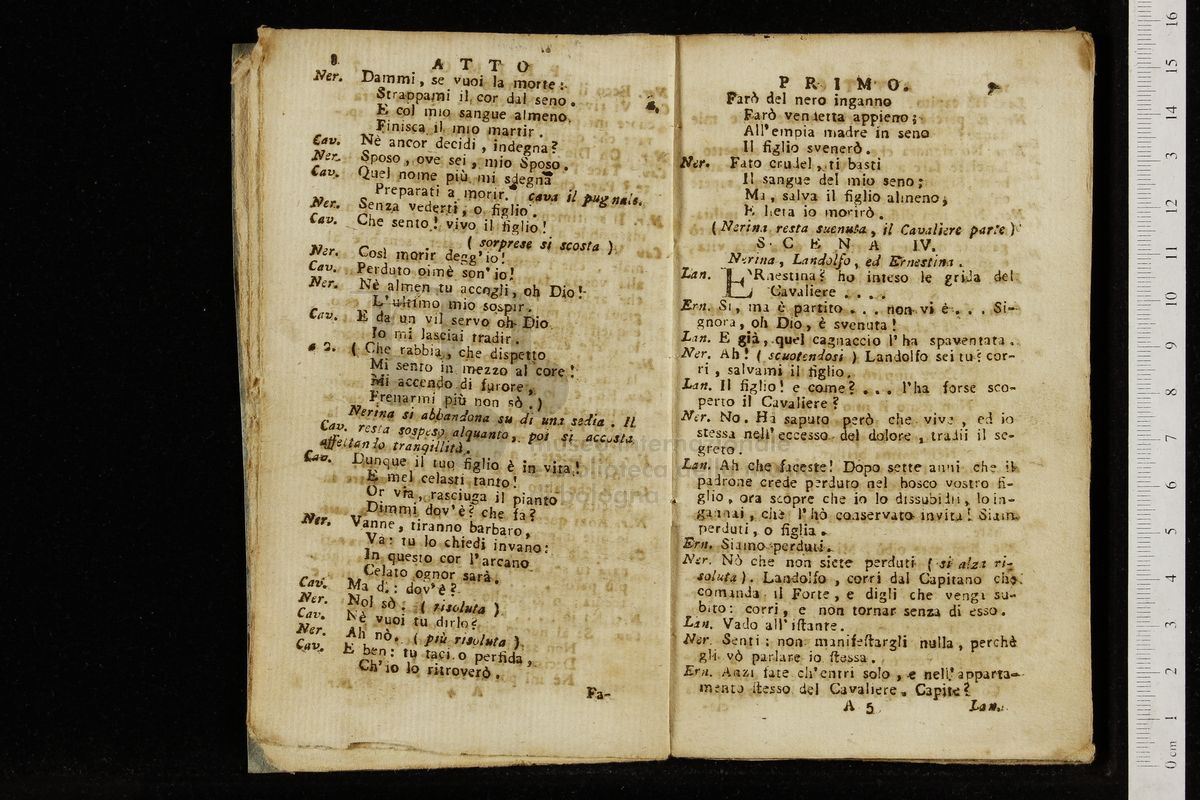 8
ATTO
Ner. Dammi, se vuoi la morte:
Strappami il cor dal seno.
E col mio sangue almeno,
Finisca il mio martir.
Cav. Nè ancor decidi, indegna?
Ner. Sposo, ove sei, mio Sposo.
Cav. Quel nome più mi sdegna
Preparati a morir. cava il pugnale.
Ner. Senza vederti, o figlio.
Cav. Che sento! vivo il figlio!
( sorprese si scosta )
Ner. Così morir degg'io!
Cav. Perduto oimè son'io!
Ner. Nè almen tu accogli, oh Dio!
L'ultimo mio sospir.
Cav. E da un vil servo oh Dio
Io mi lasciai tradir.
a 2. ( Che rabbia, che dispetto
Mi sento in mezzo al core!
Mi accendo di furore,
Frenarmi più non sò.)
Nerina si abbandona su di una sedia. Il
Cav. resta sospeso alquanto, poi si accosta
affettando tranquillità.
Cav. Dunque il tuo figlio è in vita!
E mel celasti tanto!
Or via, rasciuga il pianto
Dimmi dov'è? che fa?
Ner. Vanne, tiranno barbaro,
Va: tu lo chiedi invano:
In questo cor l'arcano
Celato ognor sarà.
Cav. Ma dì: dov'è?
Ner. Nol sò. ( risoluta )
Cav. Nè vuoi tu dirlo?
Ner. Ah nò. ( più risoluta )
Cav. E ben: tu taci o perfida,
Ch'io lo ritroverò.
Fa-
PRIMO.
9
Farò del nero inganno
Farò vendetta appieno;
All'empia madre in seno
Il figlio svenerò.
Ner. Fato crudel, ti basti
Il sangue del mio seno;
Ma, salva il figlio almeno,
E lieta io morirò.
(Nerina resta suenuta, il Cavaliere parte)
SCENA IV.
Nerina, Landolfo, ed Ernestina.
Lan. ERnestina? ho inteso le grida del
Cavaliere ....
Ern. Sì, ma è partito ... non vi è ... Si-
gnora, oh Dio, è svenuta!
Lan. E già, quel cagnaccio l'ha spaventata.
Ner. Ah! ( scuotendosi ) Landolfo sei tu? cor-
ri, salvami il figlio.
Lan. Il figlio! e come? ... l'ha forse sco-
perto il Cavaliere?
Ner. No. Ha saputo però che vive, ed io
stessa nell'eccesso del dolore, tradii il se-
greto.
Lan. Ah che faceste! Dopo sette anni che il
padrone crede perduto nel bosco vostro fi-
glio, ora scopre che io lo dissubidii, lo in-
gannai, che l'hò conservato invita! Siam
perduti, o figlia.
Ern. Siamo perduti.
Ner. Nò che non siete perduti ( si alza ri-
soluta ). Landolfo, corri dal Capitano che
comanda il Forte, e digli che venga su-
bito: corri, e non tornar senza di esso.
Lan. Vado all'istante.
Ner. Senti: non manifestargli nulla, perchè
gli vò parlare io stessa.
Ern. Anzi fate ch'entri solo, e nell'apparta-
mento stesso del Cavaliere. Capite?
A 5
Lan.
museo internazionale
biblioteca della
bologna
0 cm 1 2 3 4 5 6 7 8 9 10 11 12 13 14 15 16